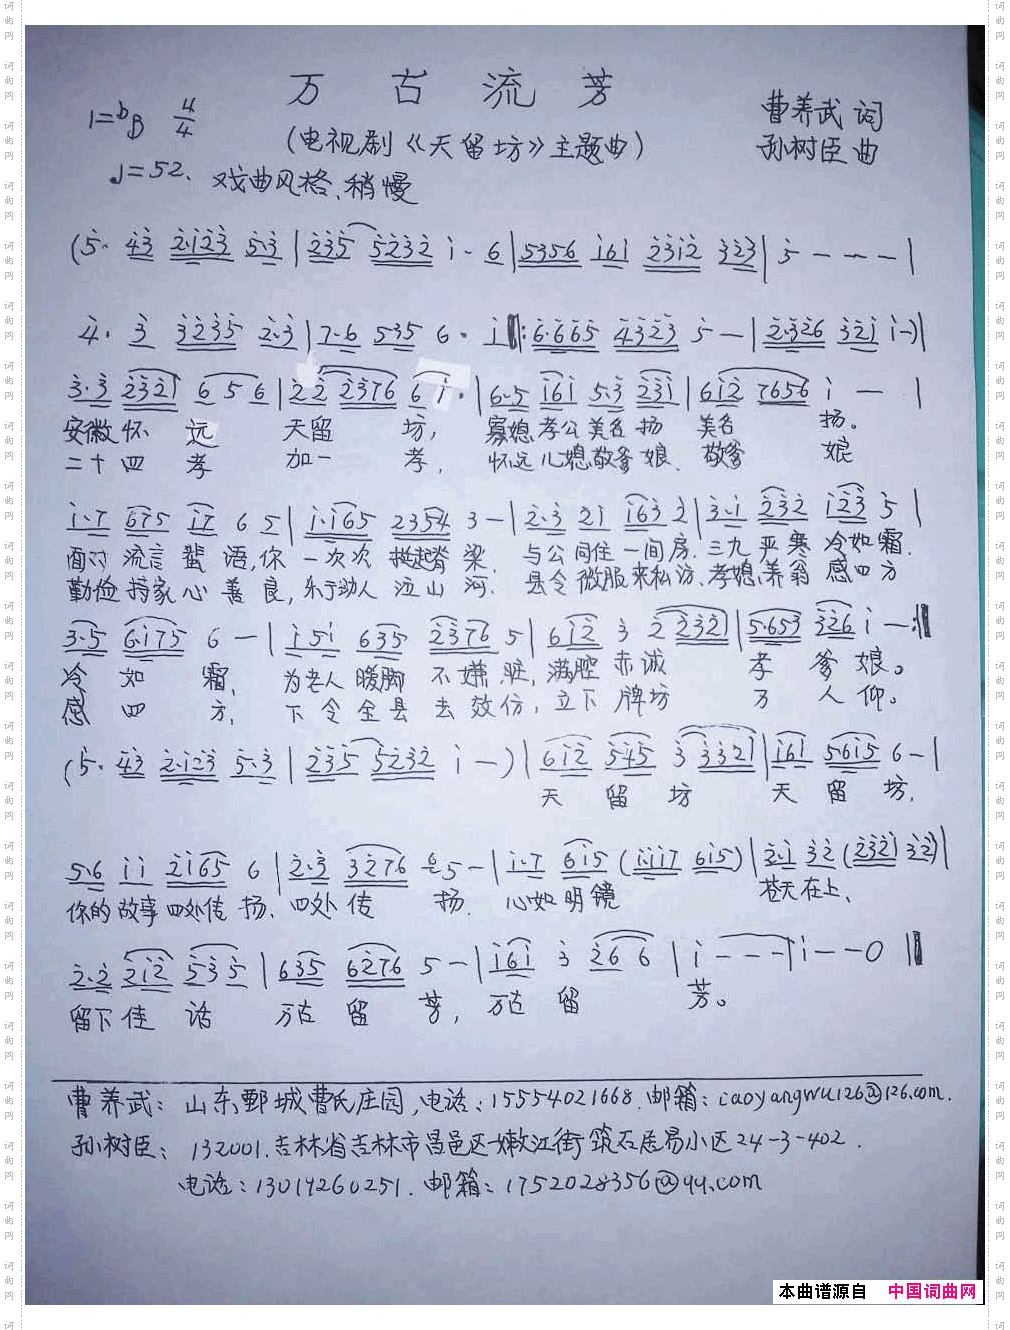 万古流芳
1=bB 4/4
(电视剧《天留坊》主题曲)
曹养武 词
孙树臣 曲
♩=52. 戏曲风格、稍慢
(5· 43 2·123 5·3 | 235 5232 i· 6 | 5356 i6i 23i2 323 | 5 - - - |
4· 3 3235 2·3 | 7·6 535 6· i ‖: 6·665 4323 5 - | 2·326 321 i -) |
3·3 2321 6 5 6 | 2 2 2376 6 i · | 6·5 i6i 5·3 23i | 6i2 7656 i - |
安徽怀 远 天留 坊, 寡媳孝公美名扬 美名 扬。
二十四 孝 加一 孝, 怀远儿媳敬爹娘. 敬爹 娘
i·7 675 i7 6 5 | i·i65 2354 3 - | 2·3 2i i63 2 | 3·i 232 i23 5 |
面对 流言 蜚 语,你 一次次 挺起脊 梁. 与公同住一间房. 三九 严 寒 冷如霜.
勤俭 持家 心 善 良, 乐于助人 泣 山 河. 县令微服来私访. 孝媳、养翁 感四方
3·5 6·i75 6 - | i 5i 635 2376 5 | 6i2 3 2 2321 | 5·653 326 i - :‖
冷 如 霜, 为老人 暖脚 不 嫌 脏, 满腔 赤诚 孝 爹 娘。
感 四 方, 下 令 全县 去 效仿, 立下 牌坊 万 人 仰。
(5· 43 2·123 5·3 | 235 5232 i -) | 6i2 545 3 3321 | i61 5615 6 - |
天 留 坊 天 留 坊,
5·6 i i 2i65 6 | 2·3 3276 65 - | i·7 6i5 (iii7 6i5) | 2·i 32 (2321 32) |
你的 故事 四处传 扬. 四处 传 扬. 心如 明 镜 苍天 在上、
2·2 2i2 535 | 635 6276 5 - | i6i 3 2 6 6 | i - - - | i - - 0 ‖
留下 佳 话 万古 留 芳, 万古 留 芳。
曹养武: 山东鄄城曹氏庄园,电话: 15554021668. 邮箱: caoyangwu126@126.com.
孙树臣: 132001.吉林省吉林市昌邑区嫩江街筑石居易小区24-3-402.
电话: 13019260251. 邮箱: 1752028356@qq.com
本曲谱源自 中国词曲网